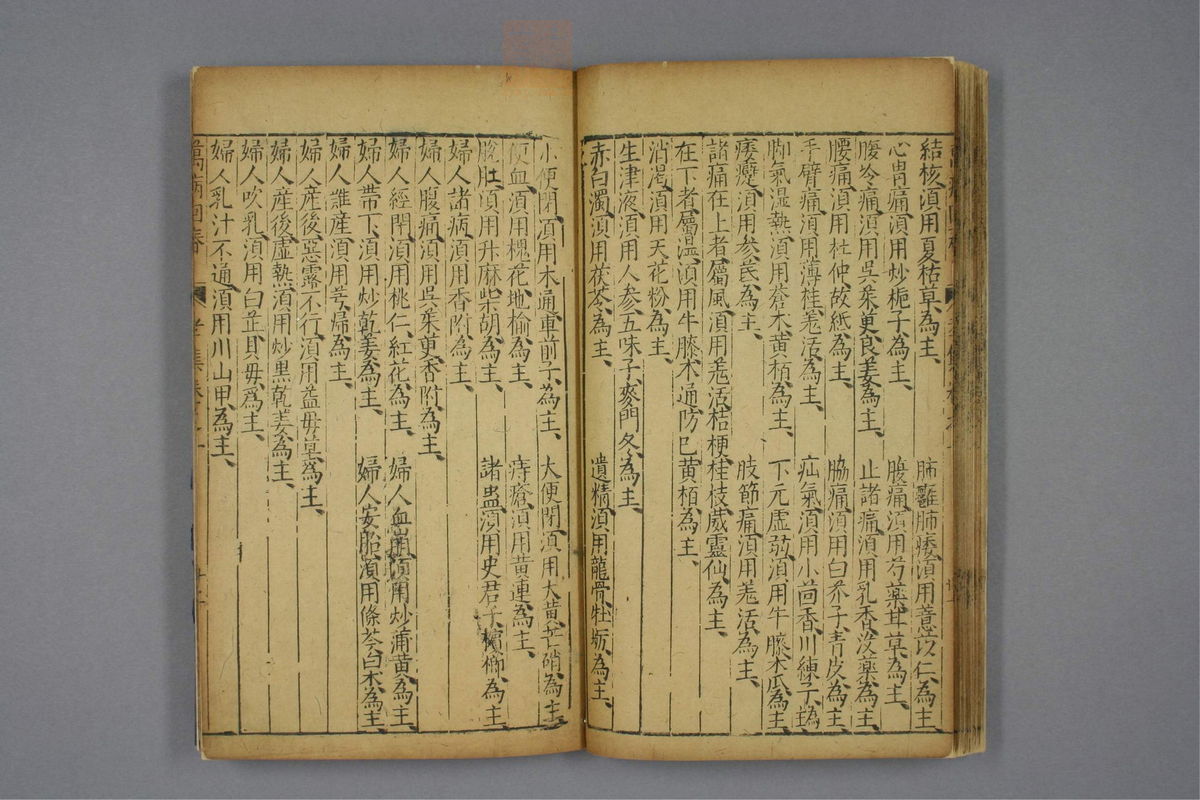 結核須用夏枯草為主、肺癰肺痿須用薏苡仁為主
心胃痛須用炒梔子為主、腹痛須用芍藥甘草為主、
腹冷痛須用吳茱萸良姜為主、止諸痛須用乳香沒藥為主、
腰痛須用杜仲故紙為主、脇痛須用白芥子青皮為主、
手臂痛須用薄桂羗活為主、疝氣須用小茴香川練子為主、
脚氣濕熱須用蒼木黄栢為主、下元虛弱須用牛膝木瓜為主、
痿躄須用参芪為主、肢節痛須用羗活為主、
諸痛在上者屬風須用羗活桔梗桂枝葳靈仙為主、
在下者屬濕須用牛膝木通防已黄栢為主、
消渴須用天花粉為主、
生津液須用人参五味子麥門冬為主、
赤白濁須用茯苓為主、遺精須用龍骨牡蛎為主、
小便閉須用木通車前子為主、大便閉須用大黄芒硝為主、
便血須用槐花地榆為主、痔瘡須用黄連為主、
脫肛須用升麻柴胡為主、諸蟲須用史君子檳榔為主、
婦人諸病須用香附為主、
婦人腹痛須用吳茱萸香附為主、
婦人經閉須用桃仁紅花為主、婦人血崩須用炒蒲黄為主、
婦人帶下須用炒乾姜為主、婦人安胎須用條芩白术為主、
婦人難産須用芎歸為主、
婦人産後惡露不行須用益母草為主、
婦人産後虛熱須用炒黒乾姜為主、
婦人吹乳須用白芷貝母為主、
婦人乳汁不通須用川山甲為主、
萬病回春